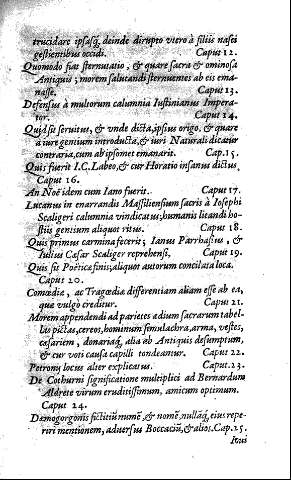 trucidare ipsasq́, deinde dirupto vtero à filiis nasci
gestientibus occidi. Caput 12.
Quomodo fiat sternutatio, & quare sacra & ominosa
Antiquis; morem salutandi sternuentes ab eis ema-
nasse. Caput 13.
Defensus à multorum calumnia Iustinianus Impera-
tor. Caput 14.
Quid sit seruitus, & vnde dicta, ipsius origo, & quare
à iure gentium introducta, & iuri Naturali dicatur
contraria, cum ab ipsomet emanarit. Cap. 15.
Quis fuerit I.C. Labeo, & cur Horatio insanus dictus.
Caput 16.
An Noë idem cum Iano fuerit. Caput 17.
Lucanus in enarrandis Massiliensium sacris à Iosephi
Scaligeri calumnia vindicatus, humanis litandi ho-
stiis gentium aliquot ritus. Caput 18.
Quis primus carmina fecerit; Ianus Parrhasius, &
Iulius Cæsar Scaliger reprehensi, Caput 19.
Quis sit Poëticæ finis; aliquot autorum conciliata loca.
Caput 20.
Comœdiæ, ac Tragœdiæ differentiam aliam esse ab ea,
quæ vulgò creditur. Caput 21.
Morem appendendi ad parietes ædium sacrarum tabel-
las pictas, cereos, hominum simulachra, arma, vestes,
cæsariem, donariaq́, alia ab Antiquis desumptum,
& cur voti causa capilli tondeantur. Caput 22.
Petronij locus alter explicatus. Caput. 23.
De Cothurni significatione multiplici ad Bernardum
Aldrete virum eruditissimum, amicum optimum.
Caput 24.
Demogorgonis fictitiũ numẽ, & nomẽ, nullãq́, eius repe-
riri mentionem, aduersus Boccaciũ, & alios. Cap. 25.
Ioui